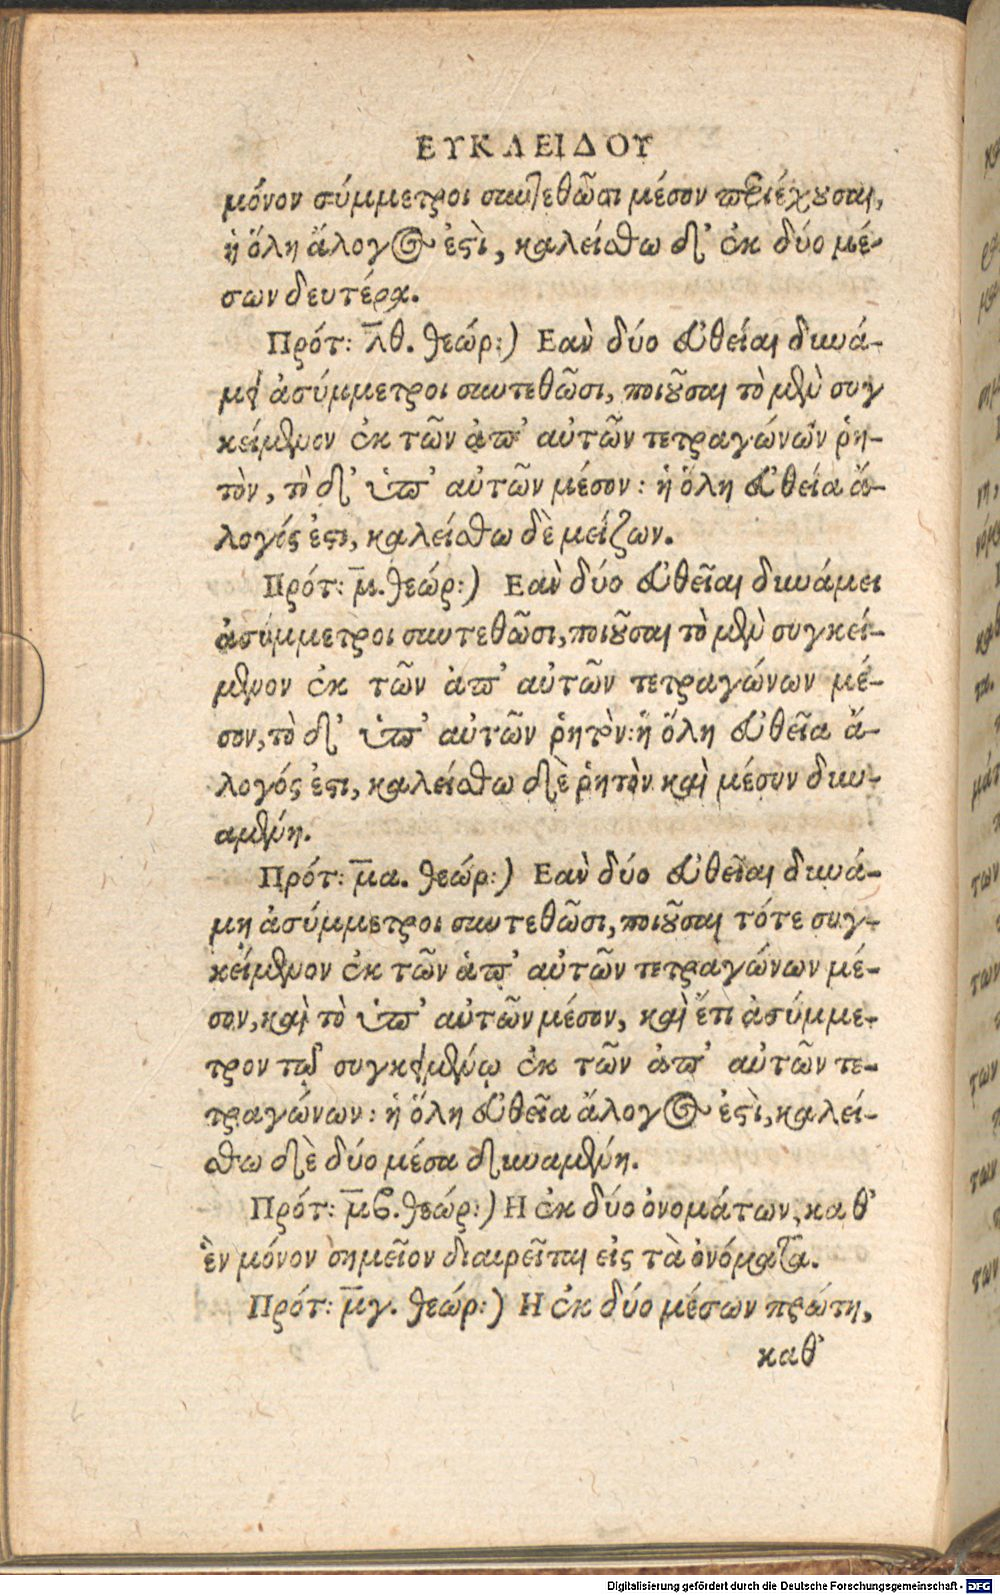 ΕΥΚΛΕΙΔΟΥ
μόνον σύμμετροι συντεθῶσι μέσον περιέχουσαι,
ἡ ὅλη ἄλογος ἐστὶ, καλείσθω δ' ἐκ δύο μέ-
σων δευτέρα.
Πρότ: λθ. θεώρ:) Εαν δύο εὐθεῖαι δυνά-
μει ἀσύμμετροι συντεθῶσι, ποιοῦσαι τὸ μὲν συγ
κείμενον ἐκ τῶν ἀπ' αὐτῶν τετραγώνων ῥη-
τὸν, τὸ δ' ὑπ' αὐτῶν μέσον: ἡ ὅλη εὐθεῖα ἄ-
λογός ἐστι, καλείσθω δὲ μείζων.
Πρότ: μ. θεώρ:) Εαν δύο εὐθεῖαι δυνάμει
ἀσύμμετροι συντεθῶσι, ποιοῦσαι τὸ μὲν συγκεί-
μενον ἐκ τῶν ἀπ' αὐτῶν τετραγώνων μέ-
σον, τὸ δ' ὑπ' αὐτῶν ῥητὸν: ἡ ὅλη εὐθεῖα ἄ-
λογός ἐστι, καλείσθω δὲ ῥητὸν καὶ μέσον δυν-
αμένη.
Πρότ: μα. θεώρ:) Εαν δύο εὐθεῖαι δυνά-
μη ἀσύμμετροι συντεθῶσι, ποιοῦσαι τότε συγ-
κείμενον ἐκ τῶν ἀπ' αὐτῶν τετραγώνων μέ-
σον, καὶ τὸ ὑπ' αὐτῶν μέσον, καὶ ἔτι ἀσύμμε-
τρον τῷ συγκειμένῳ ἐκ τῶν ἀπ' αὐτῶν τε-
τραγώνων: ἡ ὅλη εὐθεῖα ἄλογος ἐστὶ, καλεί-
σθω δὲ δύο μέσα δυναμένη.
Πρότ: μβ. θεώρ:) Η ἐκ δύο ὀνομάτων, καθ'
ἓν μόνον σημεῖον διαιρεῖται εἰς τὰ ὀνόματα.
Πρότ: μγ. θεώρ:) Η ἐκ δύο μέσων πρώτη,
καθ'
Digitalisierung gefördert durch die Deutsche Forschungsgemeinschaft - DFG